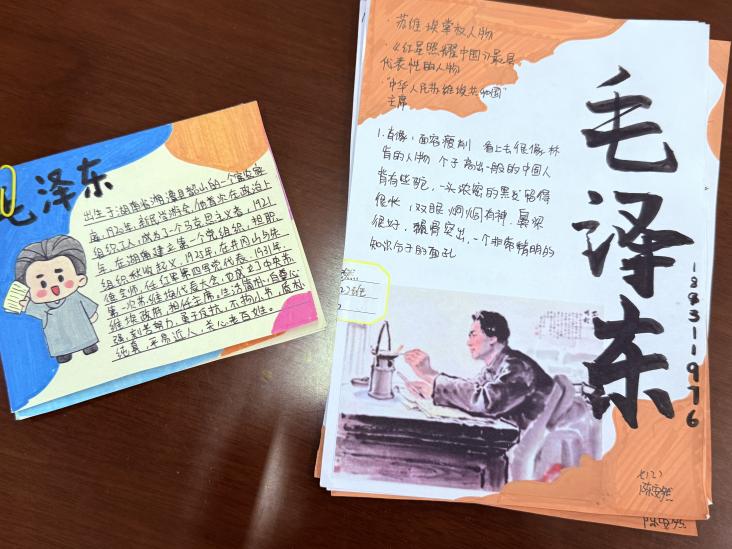 毛泽东
出生于湖南省湘潭县韶山的一个富农家
庭,1920年,新民学湘会,他首次在政治上
组织工人,成为了一个马克思主义者,1921
年,在湖南建立第一个党组织,担职
组织秋收起义,1928年,在井冈山与朱
德会师,任红军第四军党代表,1931年,
第一次苏维埃代表大会,也成立了中央苏
维埃政府,担任主席。生活简朴,自尊心
强,刻苦努力,勇于反抗,不拘小节,质朴
纯真,平易近人,关心老百姓。
·苏维埃掌权人物
·《红星照耀中国》最具
代表性的人物
·"中华人民苏维埃共和国"
主席
1.肖像:面容瘦削 看上去很像林
肯的人物 个子高出一般的中国人
背有些驼,一头浓密的黑发留得
很长,双眼炯炯有神,鼻梁
很好,颧骨突出,一个非常精明的
知识分子的面孔
毛泽东
18931976
七(2)
陈安然
陈安然